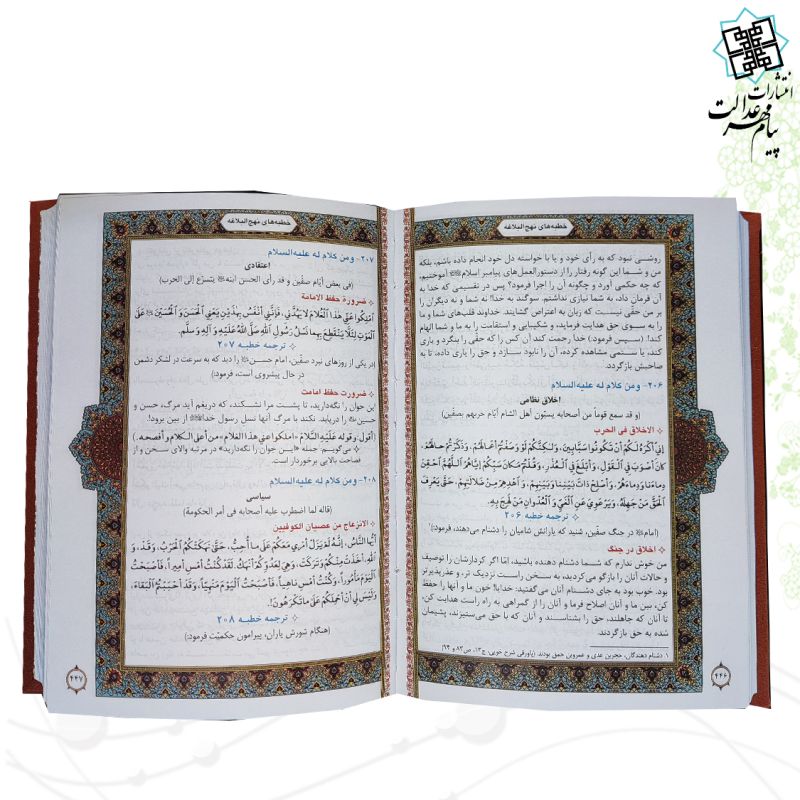 انتشارات
پیام مهر عدالت
خطبه‌های نهج البلاغه
روشنی نبود که به رأی خود و یا با خواسته دل خود انجام داده باشم، بلکه
من و شما این گونه رفتار را از دستورالعمل‌های پیامبر اسلام ﷺ آموختیم،
که چه حکمی آورد و چگونه آن را اجرا فرمود؟ پس در تقسیمی که خدا به
آن فرمان داد، به شما نیازی نداشتم. سوگند به خدا! نه شما و نه دیگران را
بر من حقّی نیست که زبان به اعتراض گشایند. خداوند قلب‌های شما و ما
را به سوی حق هدایت فرماید، و شکیبایی و استقامت را به ما و شما الهام
کند! (سپس فرمود:) خدا رحمت کند آن کس را که حقّی را بنگرد و یاری
کند، یا ستمی مشاهده کرده، آن را نابود سازد و حق را یاری داده، تا به
صاحبش بازگردد.
۲۰۶- ومن کلام له علیه‌السلام
اخلاق نظامی
(و قد سمع قوماً من أصحابه یسبّون أهل الشام أیّام حربهم بصفّین)
الاخلاق فی الحرب
إِنِّي أَكْرَهُ لَكُمْ أَنْ تَكُونُوا سَبَّابِينَ، وَلَكِنَّكُمْ لَوْ وَصَفْتُمْ أَعْمَالَهُمْ، وَذَكَرْتُمْ حَالَهُمْ،
كَانَ أَصْوَبَ فِي الْقَوْلِ، وَأَبْلَغَ فِي الْعُذْرِ، وَقُلْتُمْ مَكَانَ سَبِّكُمْ إِيَّاهُمْ: اللَّهُمَّ احْقِنْ
دِمَاءَنَا وَدِمَاءَهُمْ، وَأَصْلِحْ ذَاتَ بَيْنِنَا وَبَيْنِهِمْ، وَاهْدِهِمْ مِنْ ضَلَالَتِهِمْ، حَتَّى يَعْرِفَ
الْحَقَّ مَنْ جَهِلَهُ، وَيَرْعَوِيَ عَنِ الْغَيِّ وَالْعُدْوَانِ مَنْ لَهِجَ بِهِ.
ترجمه خطبه ۲۰۶
(امام ﷺ در جنگ صفّین، شنید که یارانش شامیان را دشنام می‌دهند، فرمود)¹
اخلاق در جنگ
من خوش ندارم که شما دشنام دهنده باشید، امّا اگر کردارشان را توصیف
و حالات آنان را بازگو می‌کردید، به سخن راست نزدیک تر، و عذرپذیرتر
بود. خوب بود به جای دشنام آنان می‌گفتید: خدایا! خون ما و آنها را حفظ
کن، بین ما و آنان اصلاح فرما و آنان را از گمراهی به راه راست هدایت کن،
تا آنان که جاهلند، حق را بشناسند و آنان که با حق می‌ستیزند، پشیمان
شده به حق بازگردند.
۱. دشنام دهندگان، حجربن عدی و عمروبن حمق بودند. (پاورقی شرح خویی، ج۱۳، ص۸۳ و ۹۴)
۴۴۶
خطبه‌های نهج البلاغه
۲۰۷- ومن کلام له علیه‌السلام
اعتقادی
(فی بعض أیّام صفّین و قد رأی الحسن ابنه ﷺ یتسرّع إلی الحرب)
ضرورة حفظ الامامة
اَمْلِكُوا عَنِّي هٰذَا الْغُلَامَ لَا يَهُدَّنِي، فَإِنَّنِي أَنْفَسُ بِهٰذَيْنِ يَعْنِي الْحَسَنَ وَالْحُسَيْنَ ﷺ عَلَى
الْمَوْتِ لِئَلَّا يَنْقَطِعَ بِهِمَا نَسْلُ رَسُولِ اللهِ صَلَّى اللهُ عَلَيْهِ وَ آلِهِ وَ سَلَّمَ.
ترجمه خطبه ۲۰۷
(در یکی از روزهای نبرد صفّین، امام حسن ﷺ را دید که به سرعت در لشکر دشمن
در حال پیشروی است، فرمود:)
ضرورت حفظ امامت
این جوان را نگه‌دارید، تا پشت مرا نشکند، که دریغم آید مرگ، حسن و
حسین ﷺ را دریابد. نکند با مرگ آنها نسل رسول خدا ﷺ از بین برود!
(أقول، وقوله عَلَیْهِ السَّلامُ «املکوا عنی هذا الغلام» من أعلی الکلام و أفصحه.)
می‌گویم: جمله «این جوان را نگه‌دارید» در مرتبه والای سخن و از
فصاحت بالایی برخوردار است.
۲۰۸- ومن کلام له علیه‌السلام
سیاسی
(قاله لما اضطرب علیه أصحابه فی أمر الحکومة)
الانزعاج من عصیان الکوفیین
أَيُّهَا النَّاسُ، إِنَّهُ لَمْ يَزَلْ أَمْرِي مَعَكُمْ عَلَى مَا أُحِبُّ، حَتَّى نَهَكَتْكُمُ الْحَرْبُ، وَقَدْ، وَ
اللهِ، أَخَذَتْ مِنْكُمْ وَتَرَكَتْ، وَهِيَ لِعَدُوِّكُمْ أَنْهَكُ. لَقَدْ كُنْتُ أَمْسِ أَمِيراً، فَأَصْبَحْتُ
الْيَوْمَ مَأْمُوراً، وَكُنْتُ أَمْسِ نَاهِياً، فَأَصْبَحْتُ الْيَوْمَ مَنْهِيّاً، وَقَدْ أَحْبَبْتُمُ الْبَقَاءَ،
وَلَيْسَ لِي أَنْ أَحْمِلَكُمْ عَلَى مَا تَكْرَهُونَ!.
ترجمه خطبه ۲۰۸
(هنگام شورش یاران، پیرامون حکمیّت فرمود:)
۴۴۷